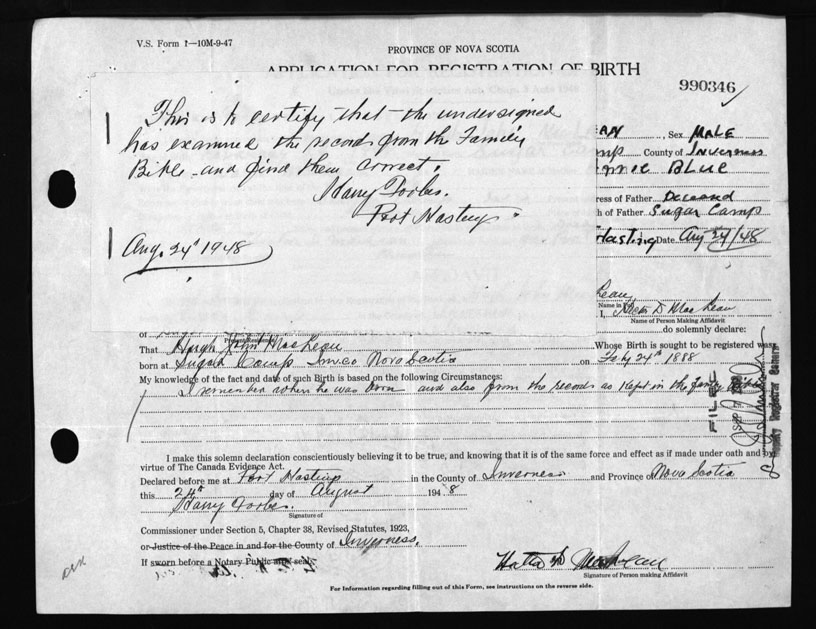 V.S. Form 1—10M-9-47
PROVINCE OF NOVA SCOTIA
APPLICATION FOR REGISTRATION OF BIRTH
990346
This is to certify that the undersigned
has examined the records from the Family
Bible and find them correct.
Harry Forbes.
Port Hastings
Aug. 24" 1948
EAN, Sex MALE
Camp County of Inverness
BLUE
ress of Father Deceased
h of Father Sugar Camp
Hasting Date Aug 24/48
Lean
Name in Full
I, D MacLean
Name of Person Making Affidavit
do solemnly declare:
of
Present Residence
That Hugh John MacLean Whose Birth is sought to be registered was
born at Sugar Camp Inv. Co Nova Scotia on Feby 24th 1888
My knowledge of the fact and date of such Birth is based on the following Circumstances:
I remember when he was born and also from the records as kept in the family Bible
FILED
Deputy Registrar General
I make this solemn declaration conscientiously believing it to be true, and knowing that it is of the same force and effect as if made under oath and by
virtue of The Canada Evidence Act.
Declared before me at Port Hastings in the County of Inverness and Province of Nova Scotia
this 24th day of August 1948
Harry Forbes.
Signature of
Commissioner under Section 5, Chapter 38, Revised Statutes, 1923,
or Justice of the Peace in and for the County of Inverness.
If sworn before a Notary Public affix seal.
MacLean
Signature of Person making Affidavit
For Information regarding filling out of this Form, see instructions on the reverse side.